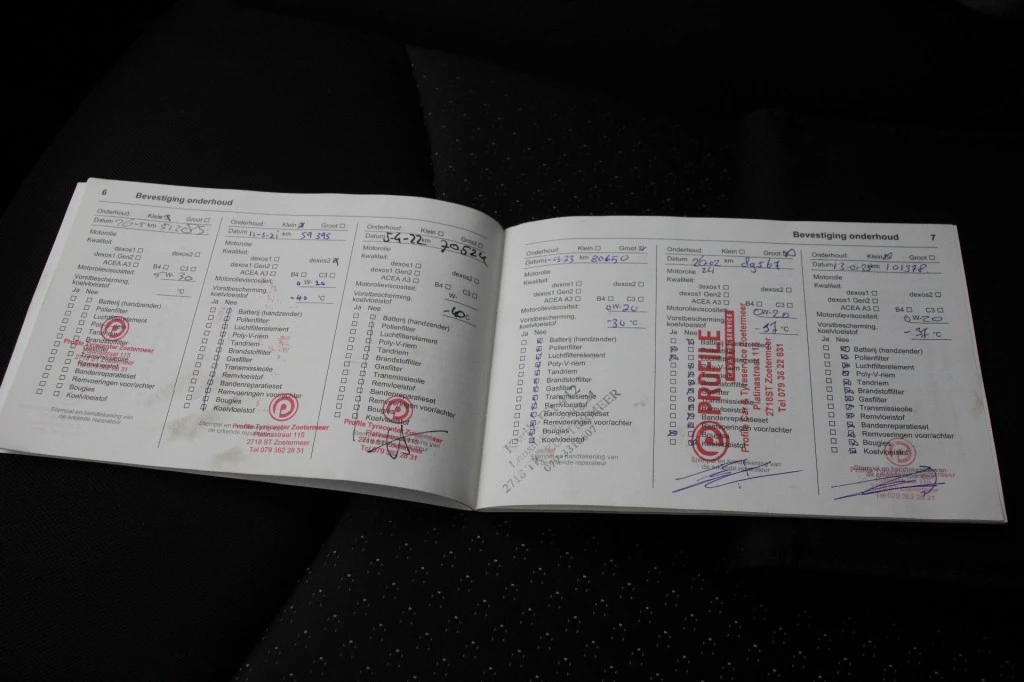 6 Bevestiging onderhoud
Onderhoud: Klein Groot
Datum km
Motorolie
Kwaliteit:
dexos1
dexos2
dexos1 Gen2
ACEA A3 B4 C3
Motorolieviscositeit:
5 W-30
Vorstbescherming,
koelvloeistof °C
Ja Nee
Batterij (handzender)
Pollenfilter
Luchtfilterelement
Poly-V-riem
Tandriem
Brandstoffilter
Gasfilter
Transmissieolie
Remvloeistof
Bandenreparatieset
Remvoeringen voor/achter
Bougies
Koelvloeistof
Stempel en handtekening van
de erkende reparateur
Profile Tyrecenter Zoetermeer
Platinastraat 115
2718 ST Zoetermeer
Onderhoud: Klein Groot
Datum km 59395
Motorolie
Kwaliteit:
dexos1
dexos2
dexos1 Gen2
ACEA A3 B4 C3
Motorolieviscositeit:
0 W-20
Vorstbescherming,
koelvloeistof -40 °C
Ja Nee
Batterij (handzender)
Pollenfilter
Luchtfilterelement
Poly-V-riem
Tandriem
Brandstoffilter
Gasfilter
Transmissieolie
Remvloeistof
Bandenreparatieset
Remvoeringen voor/achter
Bougies
Koelvloeistof
Profile Tyrecenter Zoetermeer
Platinastraat 115
2718 ST Zoetermeer
Tel 079 362 28 31
Onderhoud: Klein Groot
Datum 5-4-22 km 70524
Motorolie
Kwaliteit:
dexos1
dexos2
dexos1 Gen2
ACEA A3 B4 C3
Motorolieviscositeit:
W-
Vorstbescherming,
koelvloeistof -40°C
Ja Nee
Batterij (handzender)
Pollenfilter
Luchtfilterelement
Poly-V-riem
Tandriem
Brandstoffilter
Gasfilter
Transmissieolie
Remvloeistof
Bandenreparatieset
Remvoeringen voor/achter
Bougies
Koelvloeistof
Profile Tyrecenter Zoetermeer
2718 ST Zoetermeer
Tel 079 362 28 31
Bevestiging onderhoud 7
Onderhoud: Klein Groot
Datum km 80650
Motorolie
Kwaliteit:
dexos1
dexos2
dexos1 Gen2
ACEA A3 B4 C3
Motorolieviscositeit:
0W-20
Vorstbescherming,
koelvloeistof -34 °C
Ja Nee
Batterij (handzender)
Pollenfilter
Luchtfilterelement
Poly-V-riem
Tandriem
Brandstoffilter
Gasfilter
Transmissieolie
Remvloeistof
Bandenreparatieset
Remvoeringen voor/achter
Bougies
Koelvloeistof
Stempel en handtekening van
de erkende reparateur
Onderhoud: Klein Groot
Datum km
Motorolie
Kwaliteit:
dexos1
dexos2
dexos1 Gen2
ACEA A3 B4 C3
Motorolieviscositeit:
0W-20
Vorstbescherming,
koelvloeistof -37 °C
Ja Nee
PROFILE
CAR & TYRESERVICE
Profile Car & Tyreservice Zoetermeer
Platinastraat 115
2718ST Zoetermeer
Tel 079 36 22 831
Stempel en handtekening van
de erkende reparateur
Onderhoud: Klein Groot
Datum km 101378
Motorolie
Kwaliteit:
dexos1
dexos2
dexos1 Gen2
ACEA A3 B4 C3
Motorolieviscositeit:
Vorstbescherming,
koelvloeistof -37 °C
Ja Nee
Batterij (handzender)
Pollenfilter
Luchtfilterelement
Poly-V-riem
Tandriem
Brandstoffilter
Gasfilter
Transmissieolie
Remvloeistof
Bandenreparatieset
Remvoeringen voor/achter
Bougies
Koelvloeistof
Stempel en handtekening van
de erkende reparateur
Tel 079 362 28 31